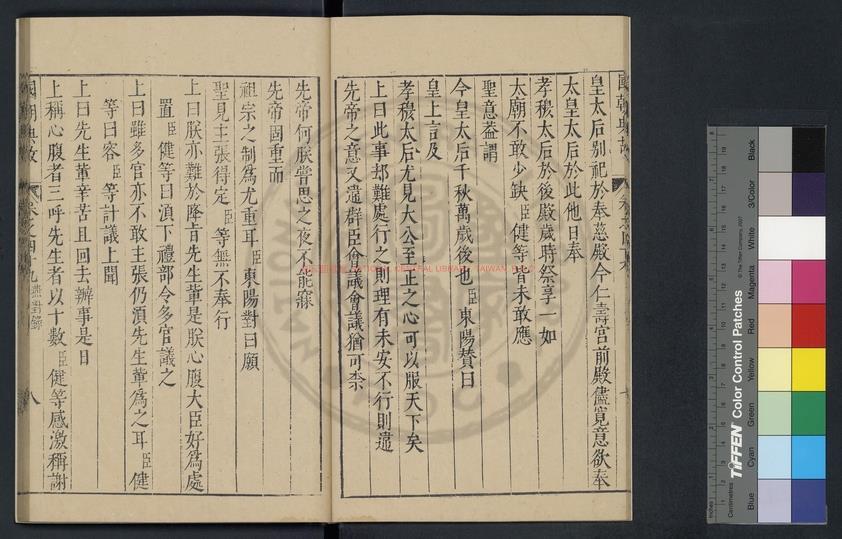 皇太后別祀於奉慈殿今仁壽宮前殿儘寬意欲奉
太皇太后於此他日奉
孝穆太后於後殿歲時祭享一如
太廟不敢少缺臣健等皆未敢應
聖意葢謂
今皇太后千秋萬歲後也臣東陽贊曰
皇上言及
孝穆太后尤見大公至正之心可以服天下矣
上曰此事却難處行之則理有未安不行則違
先帝之意又違群臣會議會議猶可柰
先帝何朕嘗思之夜不能寐
先帝固重而
祖宗之制爲尤重耳臣東陽對曰願
聖見主張得定臣等無不奉行
上曰朕亦難於降旨先生輩是朕心腹大臣好爲處
置臣健等曰須下禮部令多官議之
上曰雖多官亦不敢主張仍須先生輩爲之耳臣健
等曰容臣等計議上聞
上曰先生輩辛苦且回去辦事是日
上稱心腹者三呼先生者以十數臣健等感激稱謝
國朝典故
卷之四十九 燕對錄
八
NATIONAL CENTRAL LIBRARY, TAIWAN
TIFFEN Color Control Patches
© The Tiffen Company, 2007
Centimetres
Inches
Blue
Cyan
Green
Yellow
Red
Magenta
White
3/Color
Black